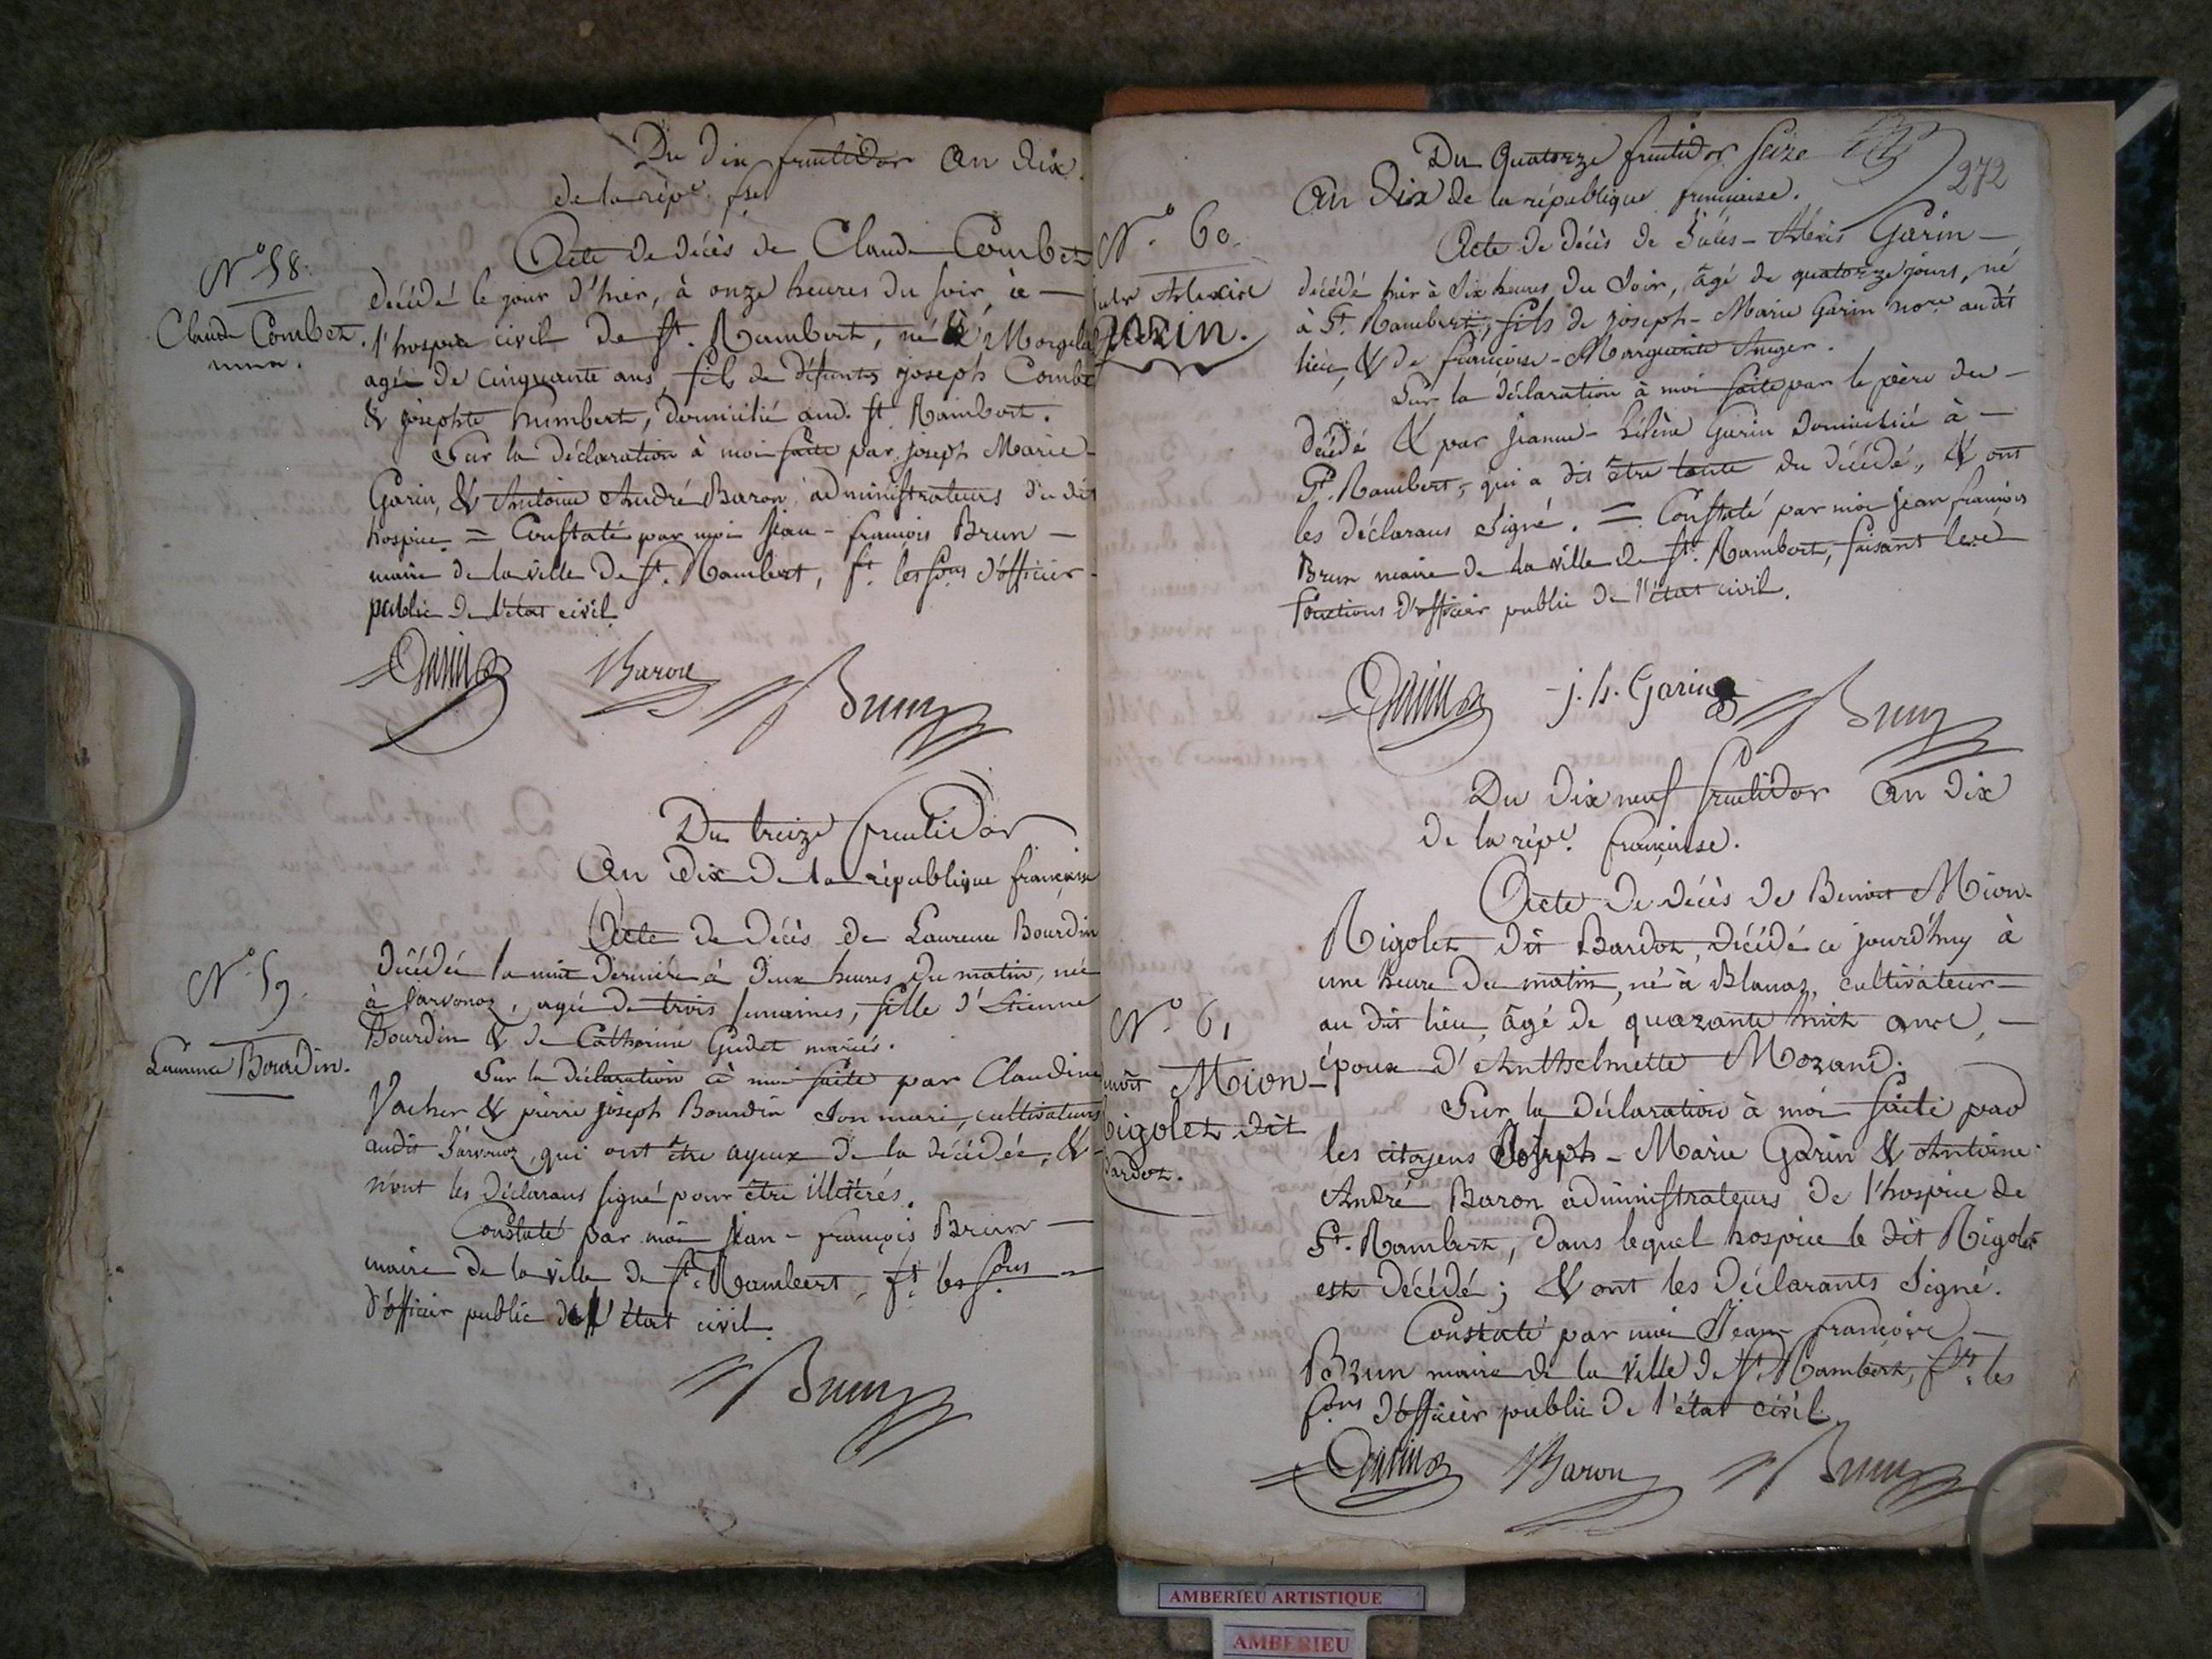 Du dix fructidor an dix
de la répe. fse
N.° 58.
Claude Combet.
Acte de décès de Claude Combet
décédé le jour d'hier, à onze heures du soir, à
l'hospice civil de St. Rambert, né à
agée de cinquante ans, fils de défunts joseph Combe
& josephte humbert, domicilié aud. St. Rambert.
Sur la déclaration à moi faite par joseph Marie
Garin, & Antoine André Baron, administrateurs du dit
hospice = Constaté par moi Jean - françois Brun —
maire de la ville de St. Rambert, ft. les fons d'officier
public de l'état civil.
Garin Baron Brun
Du treize fructidor
an dix de la république française
N.° 59.
Laurence Bourdin.
Acte de décès de Laurence Bourdin
décédée la nuit dernière à deux heures du matin, née
à Sarvonoz, agée de trois semaines, fille d'Etienne
Bourdin & de Catherine Gudet mariés.
Sur la déclaration à moi faite par Claudine
Vacher & pierre joseph Bourdin son mari, cultivateurs
audit Sarvonoz, qui ont être ayeux de la décédée, &
n'ont les déclarans signé pour être illitérés.
Constaté par moi Jean - françois Brun —
maire de la ville de St. Rambert, ft. les fons
d'officier public de l'état civil.
Brun
272
Du quatorze fructidor seize
an dix de la république française.
N.° 60.
Alexis
Garin.
Acte de décès de Jules - Alexis Garin —
décédé hier à six heures du soir, âgé de quatorze jours, né
à St. Rambert, fils de joseph - Marie Garin nore au dit
lieu, & de françoise - Marguerite Auger.
Sur la déclaration à moi faite par le père du —
décédé & par jeanne - hélène Garin domiciliée à —
St. Rambert, qui a dit être tante du décédé, & ont
les déclarans signé. = Constaté par moi jean françois
Brun maire de la ville de St. Rambert, faisant les
fonctions d'officier public de l'état civil.
Garin j. h. Garin Brun
Du dix neuf fructidor an dix
de la répe. française.
N.° 61
Mion -
rigolet dit
Bardoz.
Acte de décès de Benoit Mion-
Rigolet dit Bardoz, décédé ce jourd'huy à
une heure du matin, né à Blanaz, cultivateur —
au dit lieu, âgé de quarante huit ans, —
époux d'Anthelmette Mozand.
Sur la déclaration à moi faite par
les citoyens Joseph - Marie Garin & Antoine
André Baron administrateurs de l'hospice de
St. Rambert, dans lequel hospice le dit Rigolet
est décédé; & ont les déclarants signé.
Constaté par moi Jean françois —
Brun maire de la ville de St. Rambert, ft. les
fons d'officier public de l'état civil.
Garin Baron Brun
AMBERIEU ARTISTIQUE
AMBERIEU